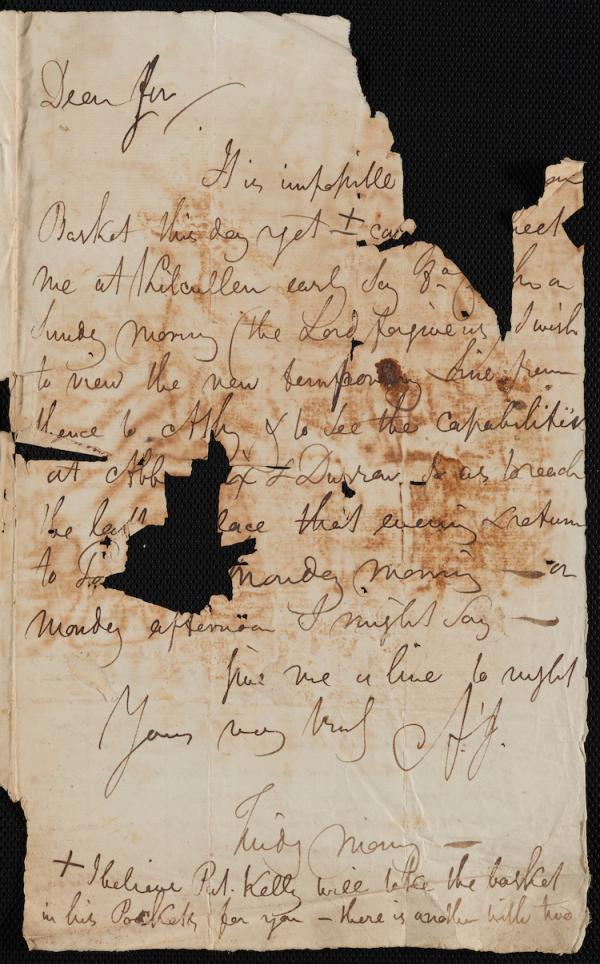 Dear Sir
It is impossible
Basket this day yet + can meet
me at Kilcullen early say
Sunday morning (the Lord forgive us I wish
to view the new temporary line from
thence to Athy & to see the capabilities
at Abb & Durrow so as to reach
the last place that evening & return
to Monday morning — or
Monday afternoon I might say —
Give me a line to night
Yours very truly A. J.
Friday Morng —
+ I believe Pat. Kelly will take the basket
in his Pockets for you — there is another with two